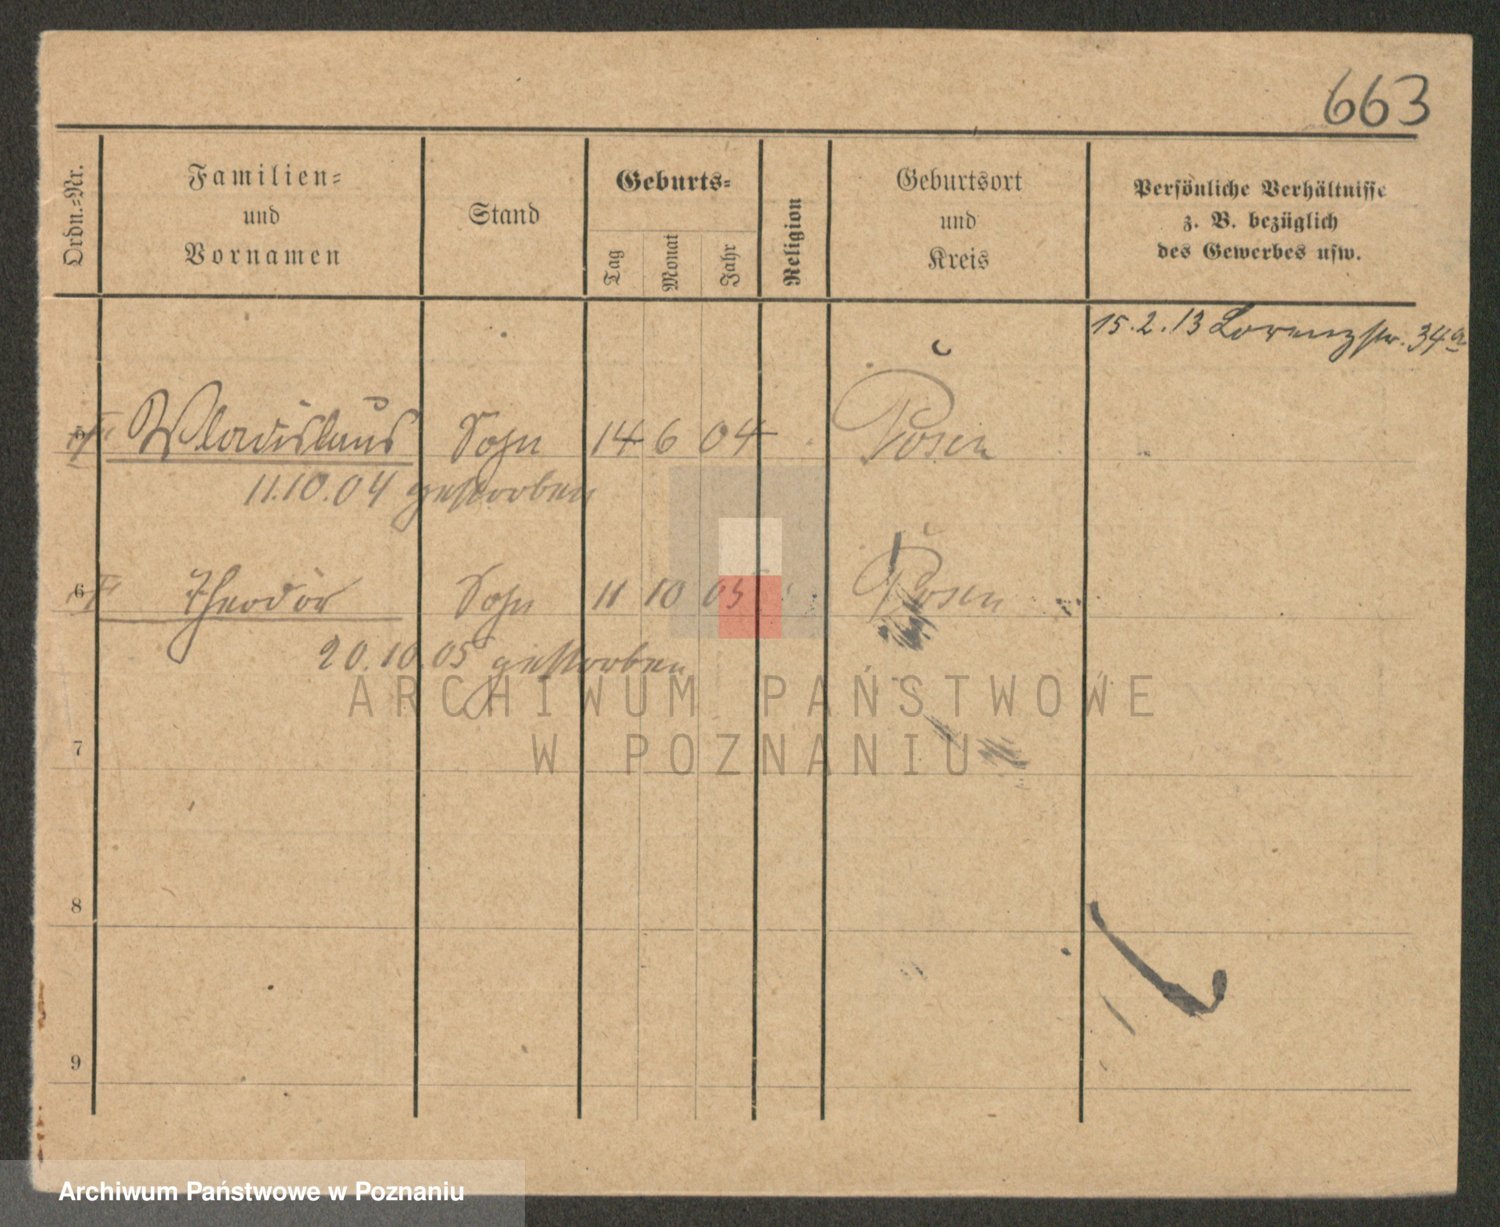 663
Ordn.-Nr.
Familien-
und
Vornamen
Stand
Geburts-
Tag
Monat
Jahr
Religion
Geburtsort
und
Kreis
Persönliche Verhältnisse
z. B. bezüglich
des Gewerbes usw.
15.2.13 Lorenzstr. 34a
5 Wladislaus Sohn 14 6 04 Posen
11.10.04 gestorben
6 Theodor Sohn 11 10 05 Posen
20.10.05 gestorben
ARCHIWUM PAŃSTWOWE
W POZNANIU
7
8
9
Archiwum Państwowe w Poznaniu